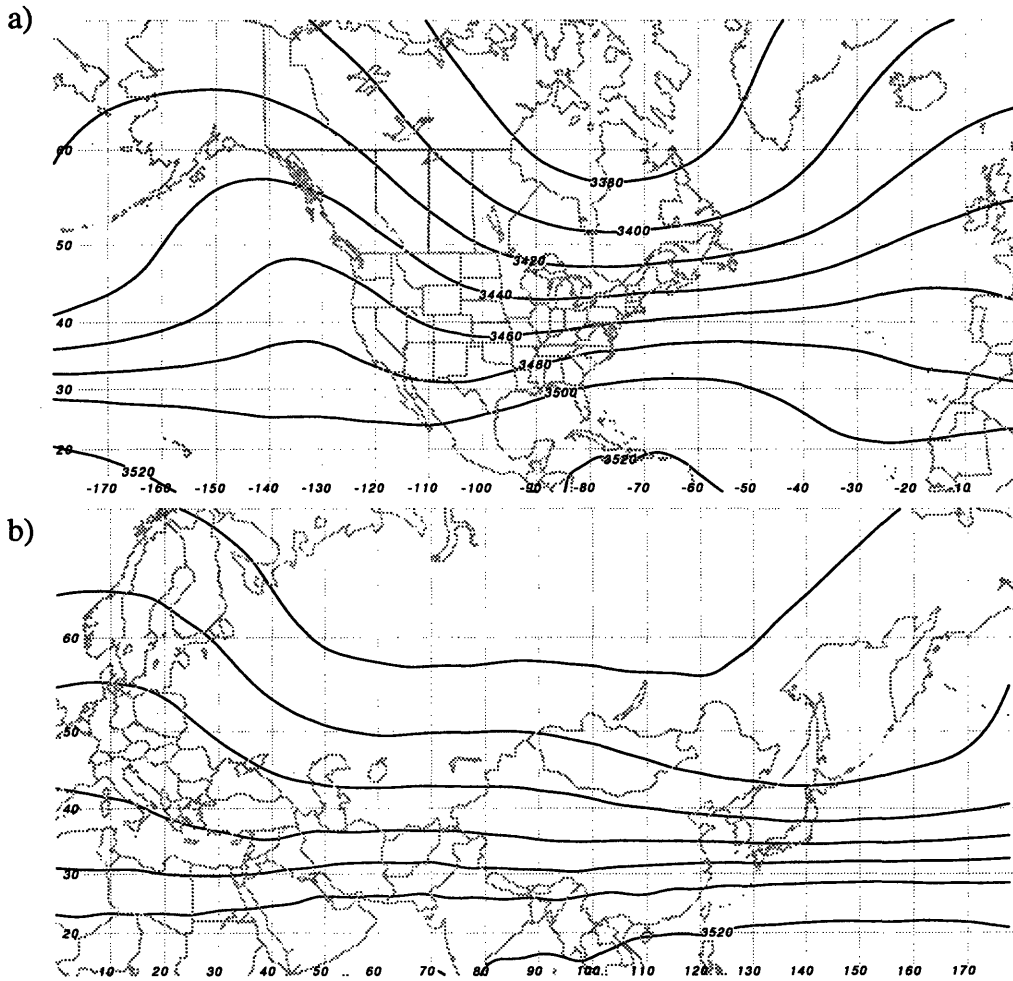 a)
60
50
40
30
20
3380
3400
3420
3440
3460
3480
3500
3520
3520
-170 -160 -150 -140 -130 -120 -110 -100 -90 -80 -70 -60 -50 -40 -30 -20 -10
b)
60
50
40
30
20
3520
10 20 30 40 50 60 70 80 90 100 110 120 130 140 150 160 170